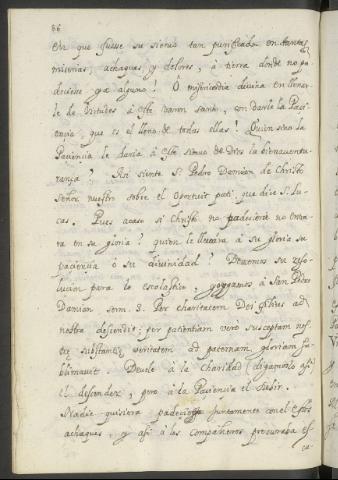 86
en que fuesse su siervo tan purificado en tantas
miserias, achaques y dolores, à tierra donde no pa
deciese ya alguno! Ò misericordia divina en llenar
le de virtudes à este varon santo, en darle la Paci
encia, que es el lleno de todas ellas! Quien sino la
Paciencia le daria à este siervo de Dios la bienaventu
ranza? Asi siente S. Pedro Damian de Christo
Señor nuestro sobre el oportuit pati, que dice S. Lu
cas. Pues acaso si Christo no padeciera no entra
ra en su gloria? quien le llevara à su gloria su
paciencia ò su divinidad? Dexemos su reso
lucion para lo escolastico, y oygamos à San Pedro
Damian serm. 3. Per charitatem Dei filius ad
nostra descendit; per patientiam vero susceptam nos
træ substantiæ veritatem ad paternam gloriam su
blimavit. Deuele à la Charidad (digamoslo asi)
el descender, pero à la Paciencia el subir.
Nadie quisiera padeciesse juntamente con el estos
achaques, y asi à los compañeros procuraba es
ca-